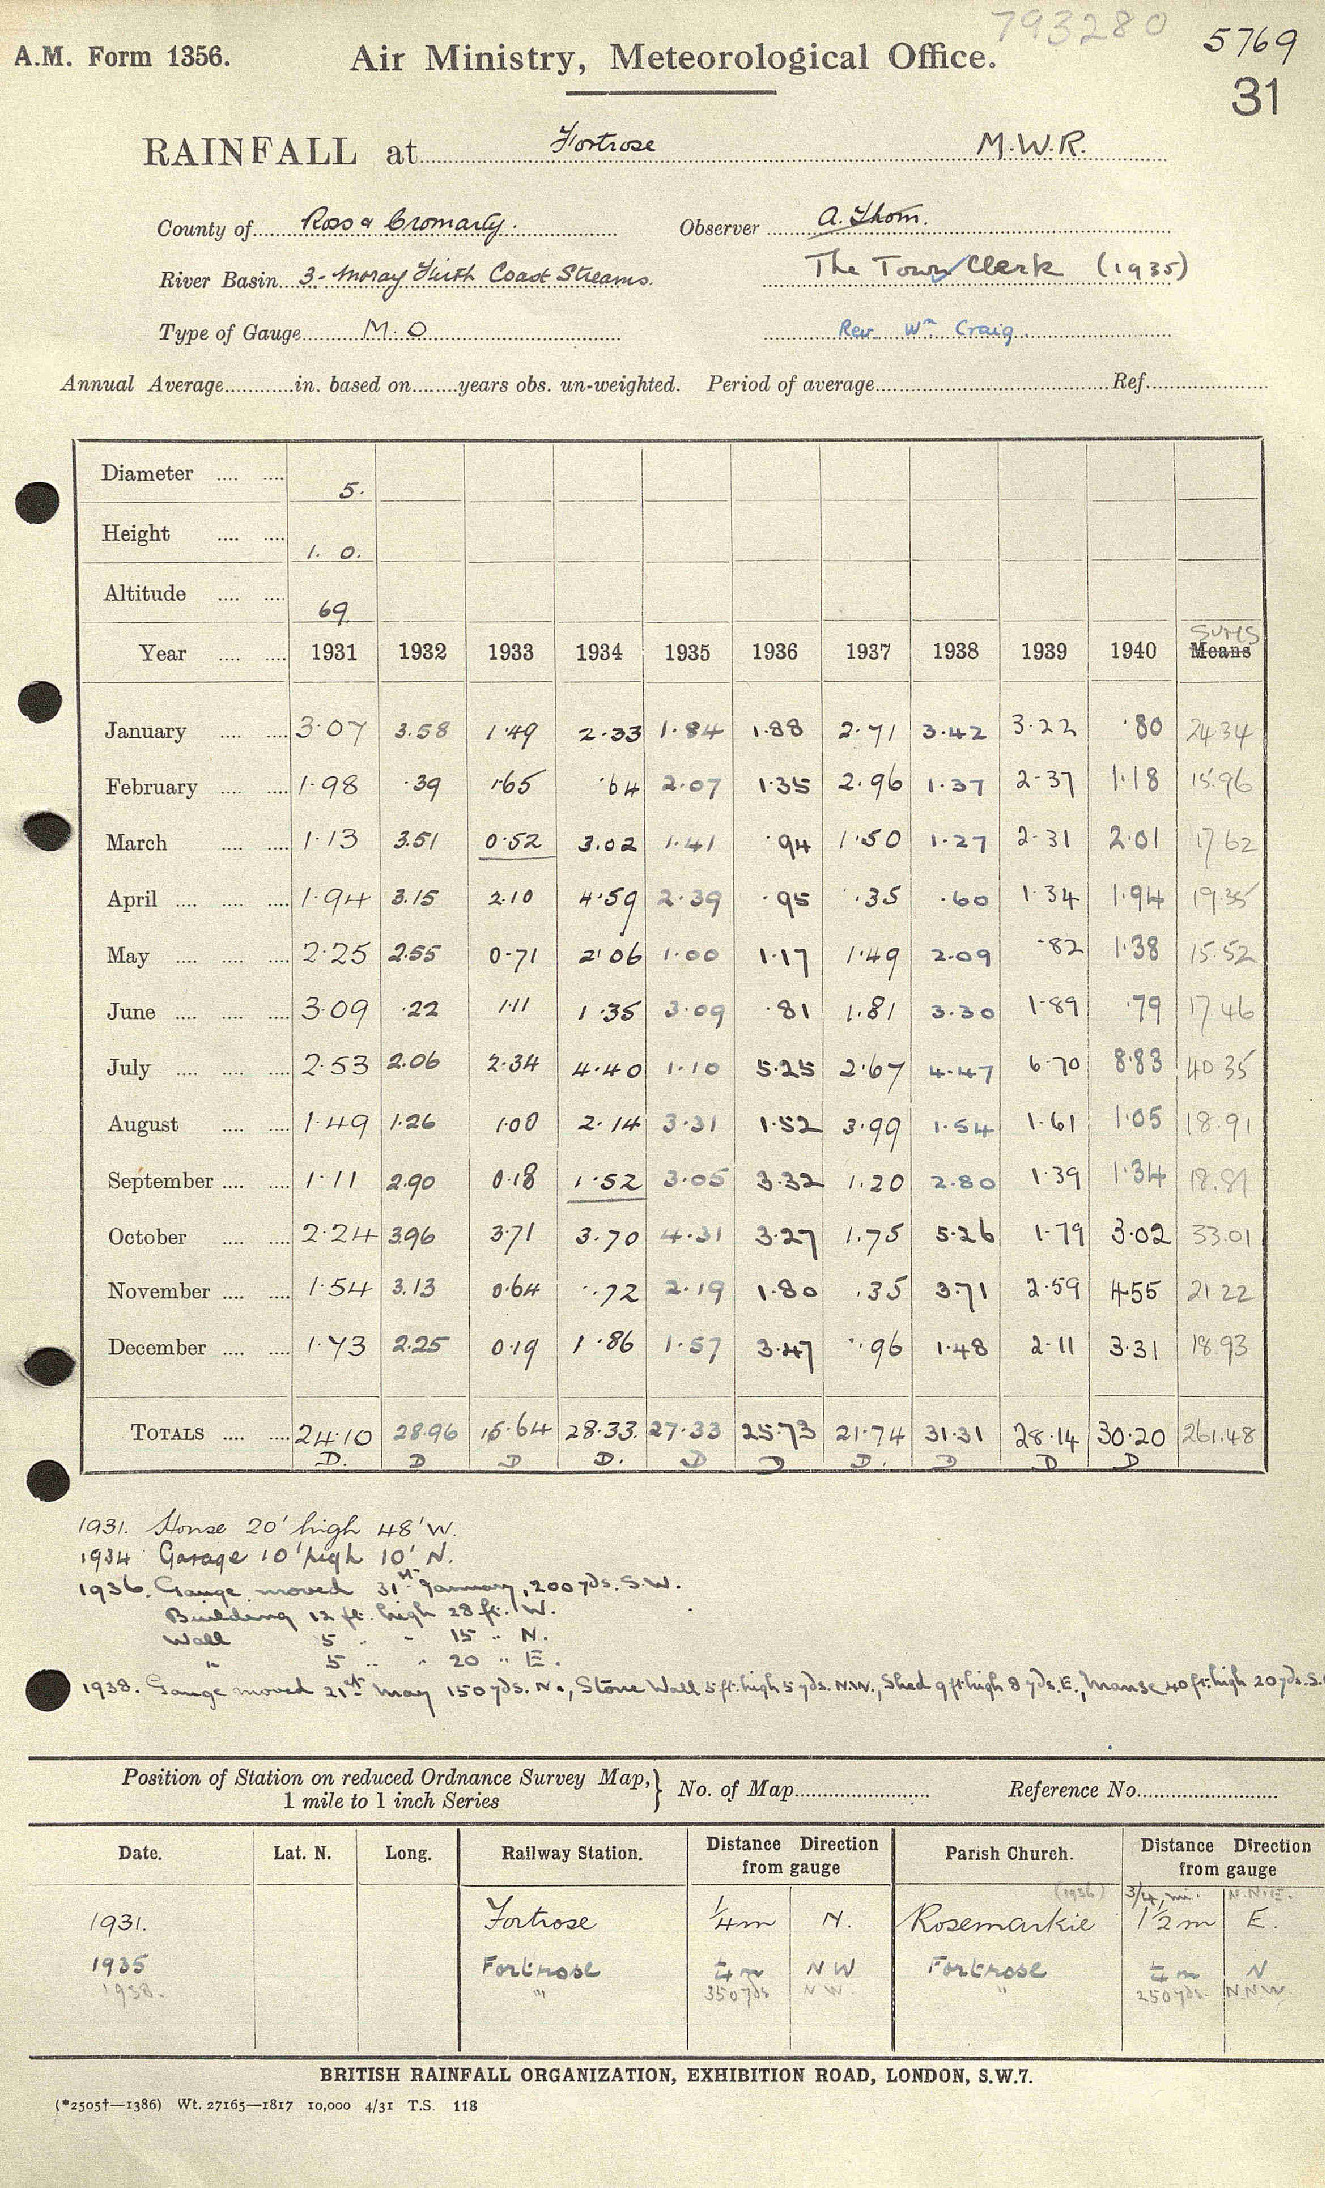 793280
5769
A.M. Form 1356. Air Ministry, Meteorological Office.
31
RAINFALL at Fortrose M.W.R.
County of Ross & Cromarty. Observer A. Thom.
River Basin 3- Moray Firth Coast Streams. The Town Clerk (1935)
Type of Gauge M.O Rev Wm Craig
Annual Average in. based on years obs. un-weighted. Period of average Ref.
Diameter 5.
Height 1. 0.
Altitude 69
Sums
Year 1931 1932 1933 1934 1935 1936 1937 1938 1939 1940 Means
January 3.07 3.58 1.49 2.33 1.84 1.88 2.71 3.42 3.22 .80 24.34
February 1.98 .39 1.65 .64 2.07 1.35 2.96 1.37 2.37 1.18 15.96
March 1.13 3.51 0.52 3.02 1.41 .94 1.50 1.27 2.31 2.01 17.62
April 1.94 3.15 2.10 4.59 2.39 .95 .35 .60 1.34 1.94 19.35
May 2.25 2.55 0.71 2.06 1.00 1.17 1.49 2.09 .82 1.38 15.52
June 3.09 .22 1.11 1.35 3.09 .81 1.81 3.30 1.89 .79 17.46
July 2.53 2.06 2.34 4.40 1.10 5.25 2.67 4.47 6.70 8.83 40.35
August 1.49 1.26 1.00 2.14 3.31 1.52 3.99 1.54 1.61 1.05 18.91
September 1.11 2.90 0.18 1.52 3.05 3.32 1.20 2.80 1.39 1.34 18.81
October 2.24 3.96 3.71 3.70 4.31 3.27 1.75 5.26 1.79 3.02 33.01
November 1.54 3.13 0.64 .72 2.19 1.80 .35 3.71 2.59 4.55 21.22
December 1.73 2.25 0.19 1.86 1.57 3.47 .96 1.48 2.11 3.31 18.93
TOTALS 24.10 28.96 15.64 28.33 27.33 25.73 21.74 31.31 28.14 30.20 261.48
D. D D D. D D D. D D D
1931. House 20' high 48' W.
1934 Garage 10' high 10' N.
1936. Gauge moved 31st January, 200 yds. S.W.
Building 12 ft. high 28 ft. W.
Wall 5 " " 15 " N.
" 5 " " 20 " E.
1938. Gauge moved 21st May 150 yds. N., Stone Wall 5 ft. high 5 yds. N.W., Shed 9 ft high 8 yds. E., Manse 40 ft. high 20 yds. S.
Position of Station on reduced Ordnance Survey Map,
1 mile to 1 inch Series } No. of Map Reference No.
Date. Lat. N. Long. Railway Station. Distance Direction from gauge Parish Church. Distance Direction from gauge
(1936) 3/4 mi. N.N.E.
1931. Fortrose 1/4 m N. Rosemarkie 1 1/2 m E.
1935 Fortrose 1/4 m NW Fortrose 1/4 m N
1938. " 350 yds N W. " 250 yds. NNW.
BRITISH RAINFALL ORGANIZATION, EXHIBITION ROAD, LONDON, S.W.7.
(*2505†—1386) Wt. 27165—1817 10,000 4/31 T.S. 118